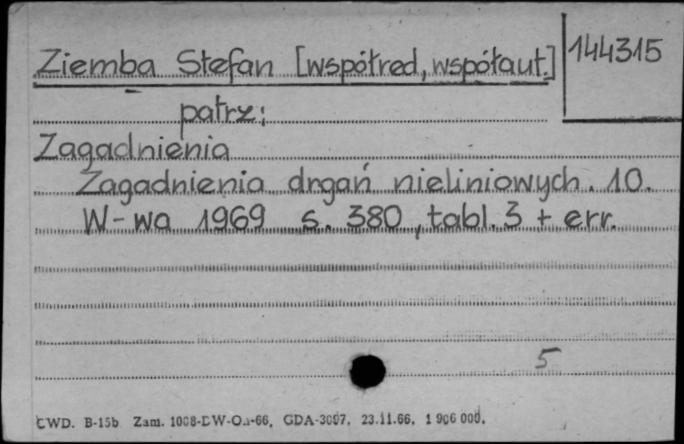 Ziemba Stefan [współred, współaut.]
144315
patrz:
Zagadnienia
Zagadnienia drgań nieliniowych. 10.
W-wa 1969 s. 380, tabl. 3 + err.
5
CWD. B-15b Zam. 1008-DW-Oa-66, GDA-3097, 23.11.66, 1 906 000.